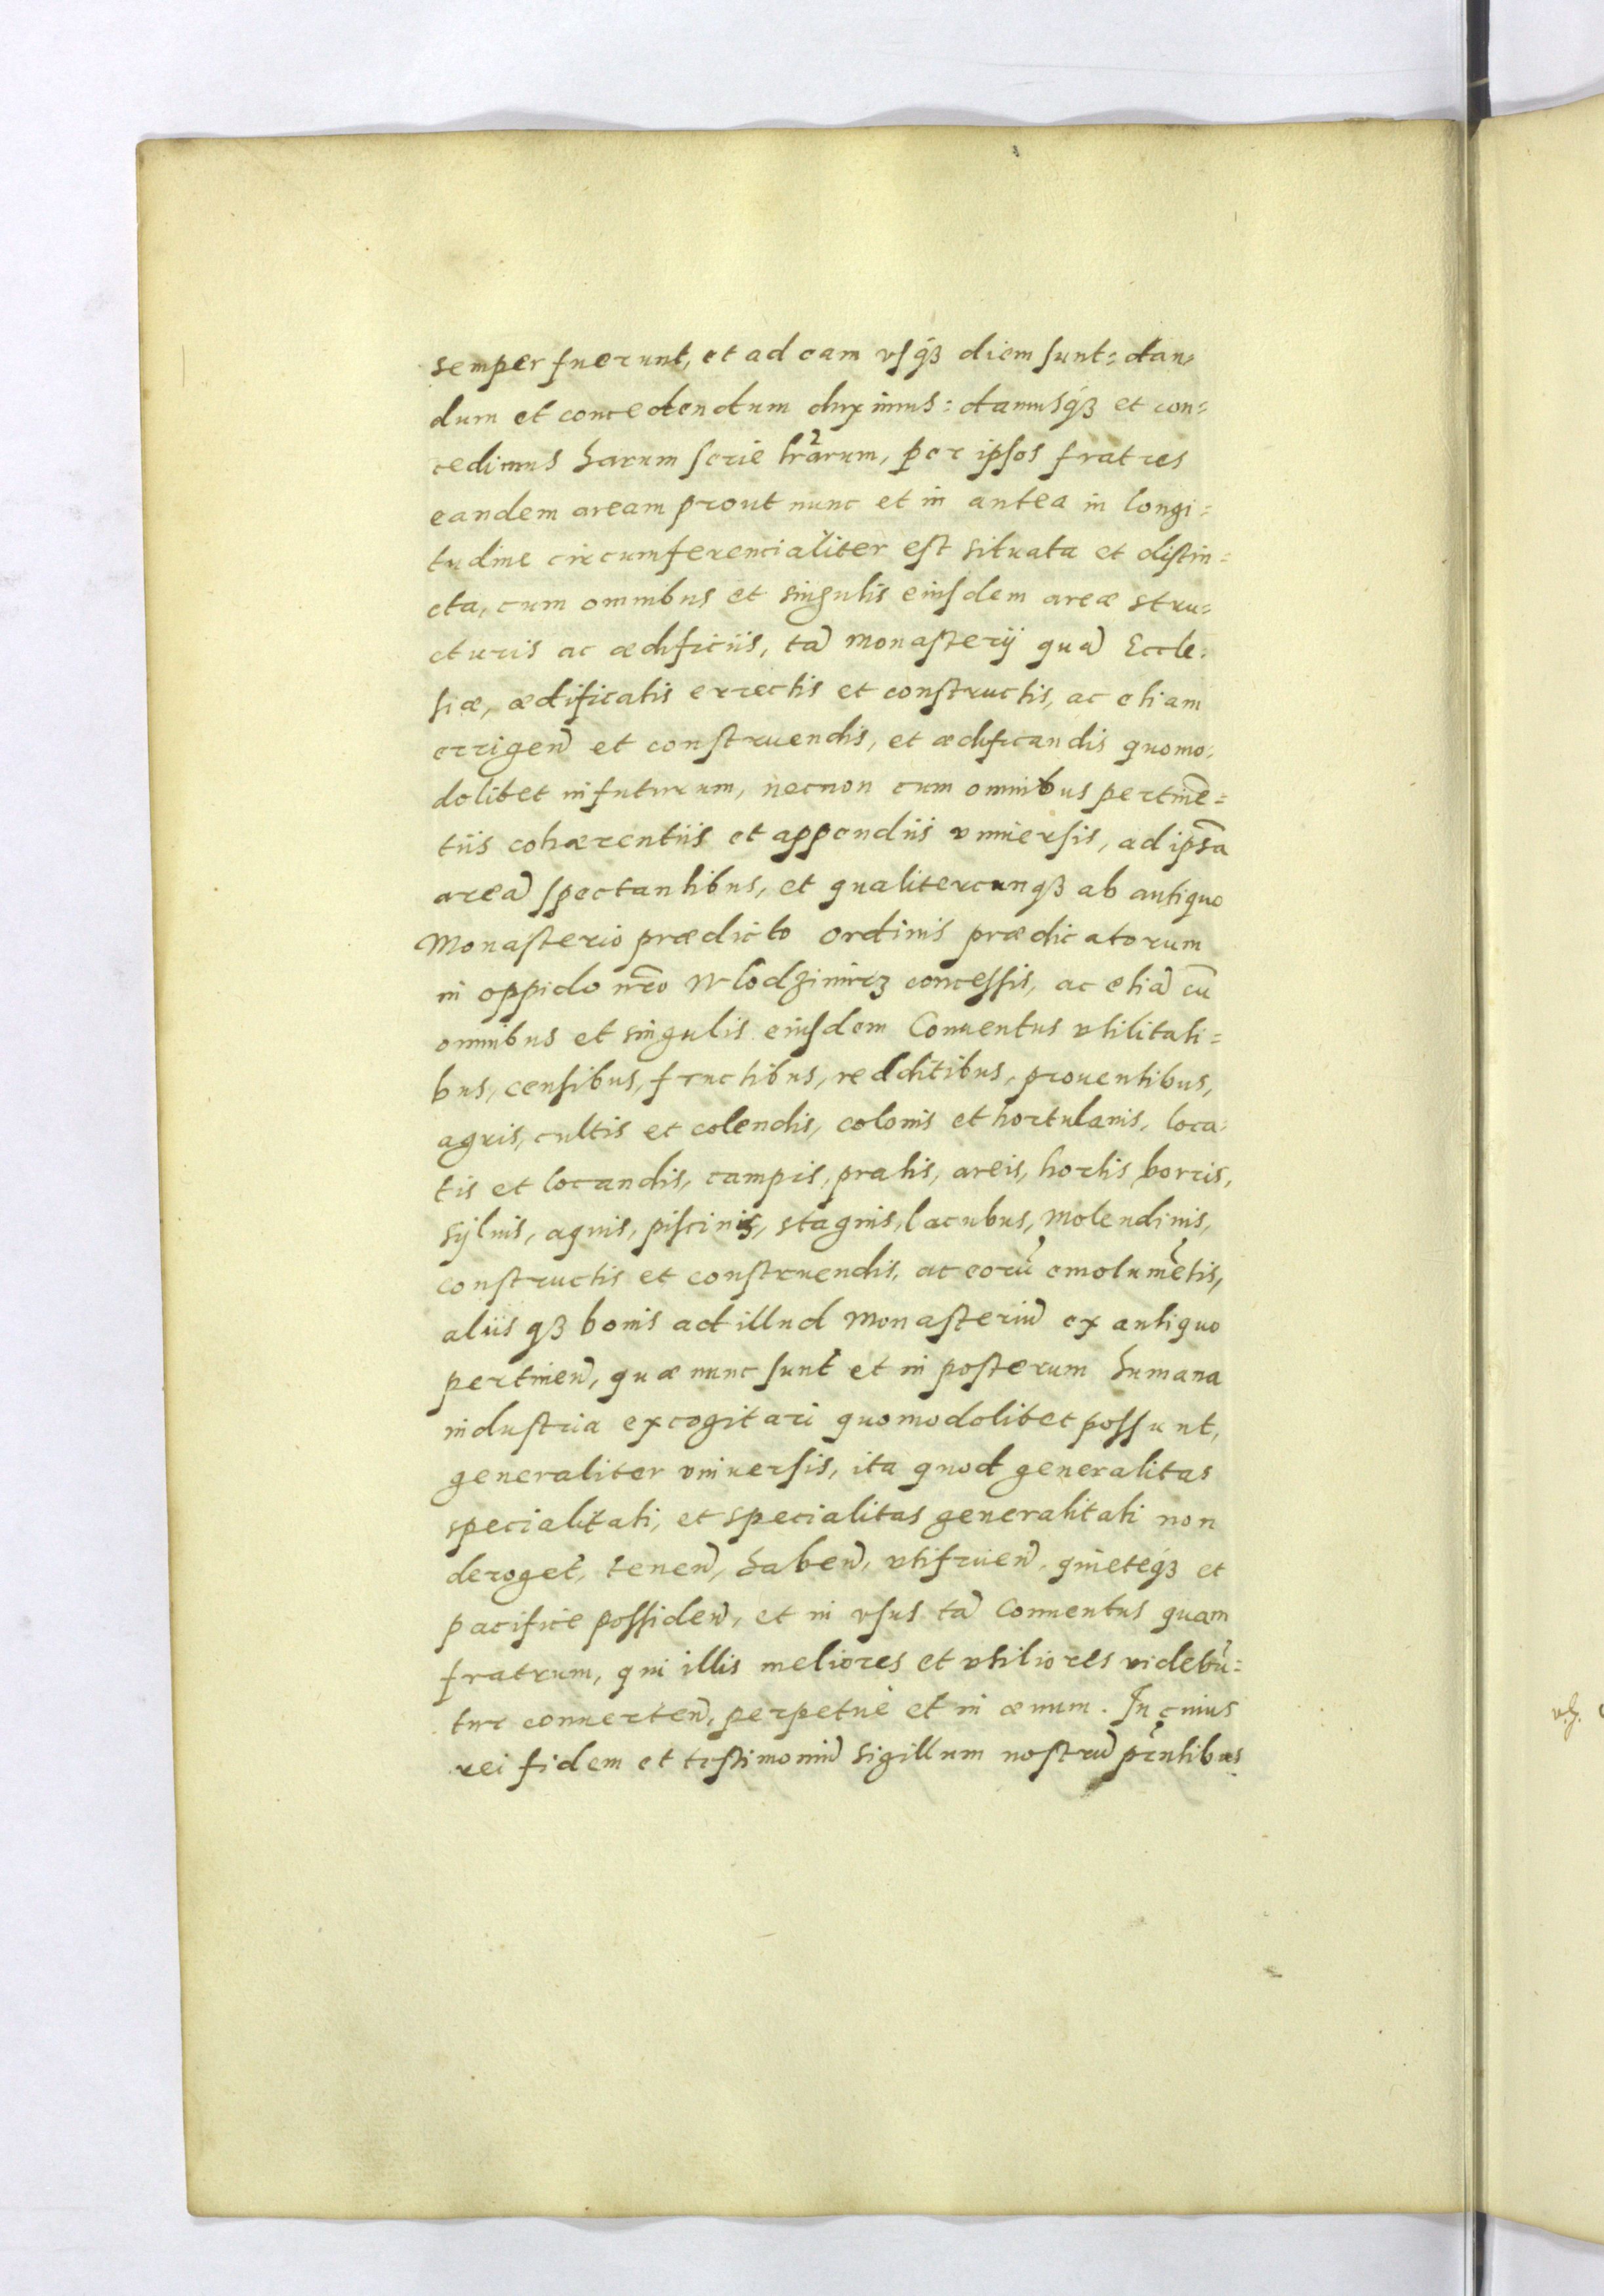 semper fuerunt, et ad eam vsq́ꝫ diem sunt: dan=
dum et concedendum duximus: damusq́ꝫ et con=
cedimus harum serie lr̃arum, per ipsos fratres
eandem aream prout nunc et in antea in longi=
tudine circumferencialiter est situata et distin=
cta, cum omnibus et singulis eiusdem areæ stru=
cturis ac ædificiis, tã Monasterij quã Eccle=
siæ, ædificatis errectis et constructis, ac etiam
errigeñ et construendis, et ædificandis quomo=
dolibet in futurum, necnon cum omnibus pertinẽ=
tiis cohærentiis et appendiis vniuersis, ad ipsã
areã spectantibus, et qualitercunqꝫ ab antiquo
Monasterio prædicto ordinis prædicatorum
in oppido nr̃o Wlodzimirz concessis, ac etiã cũ
omnibus et singulis eiusdem Conuentus vtilitati=
bus, censibus, fructibus, redditibus, prouentibus,
agris, cultis et colendis, colonis et hortulanis, loca=
tis et locandis, campis, pratis, areis, hortis borris,
syluis, aquis, piscinis, stagnis, lacubus, Molendinis,
constructis et construendis, ac eorũ emolumẽtis,
aliis qꝫ bonis ad illud Monasteriũ ex antiquo
pertineñ, quæ nunc sunt et in posterum humana
industria excogitari quomodolibet possunt,
generaliter vniuersis, ita quod generalitas
specialitati, et specialitas generalitati non
deroget, teneñ, habeñ, vtifrueñ, quieteq́ꝫ et
pacifice possideñ, et in vsus tã Conuentus quam
fratrum, qui illis meliores et vtiliores videbũ=
tur conuerteñ, perpetuè et in æuum. In cuius
rei fidem et testimoniũ sigillum nostrũ pr̃ntibus